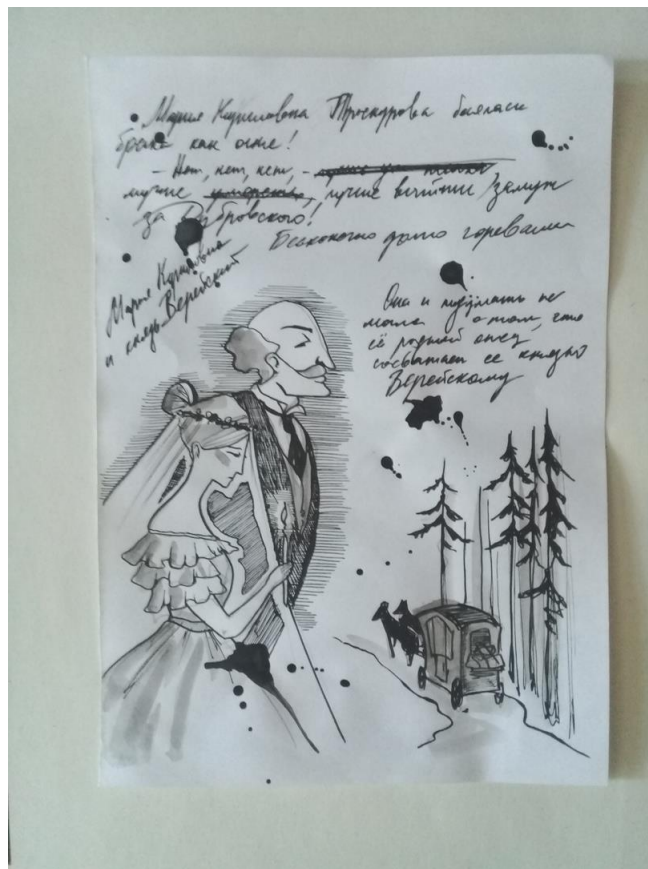 Мария Кириловна Троекурова боялась
брака как огня!
– Нет, нет, нет, – лучше
лучше умереть, лучше выйти замуж
за Дубровского!
Бесконечно долго горевали
Мария Кириловна
и князь Верейский
Она и подумать не
могла о том, что
её родной отец
сосватает её князю
Верейскому